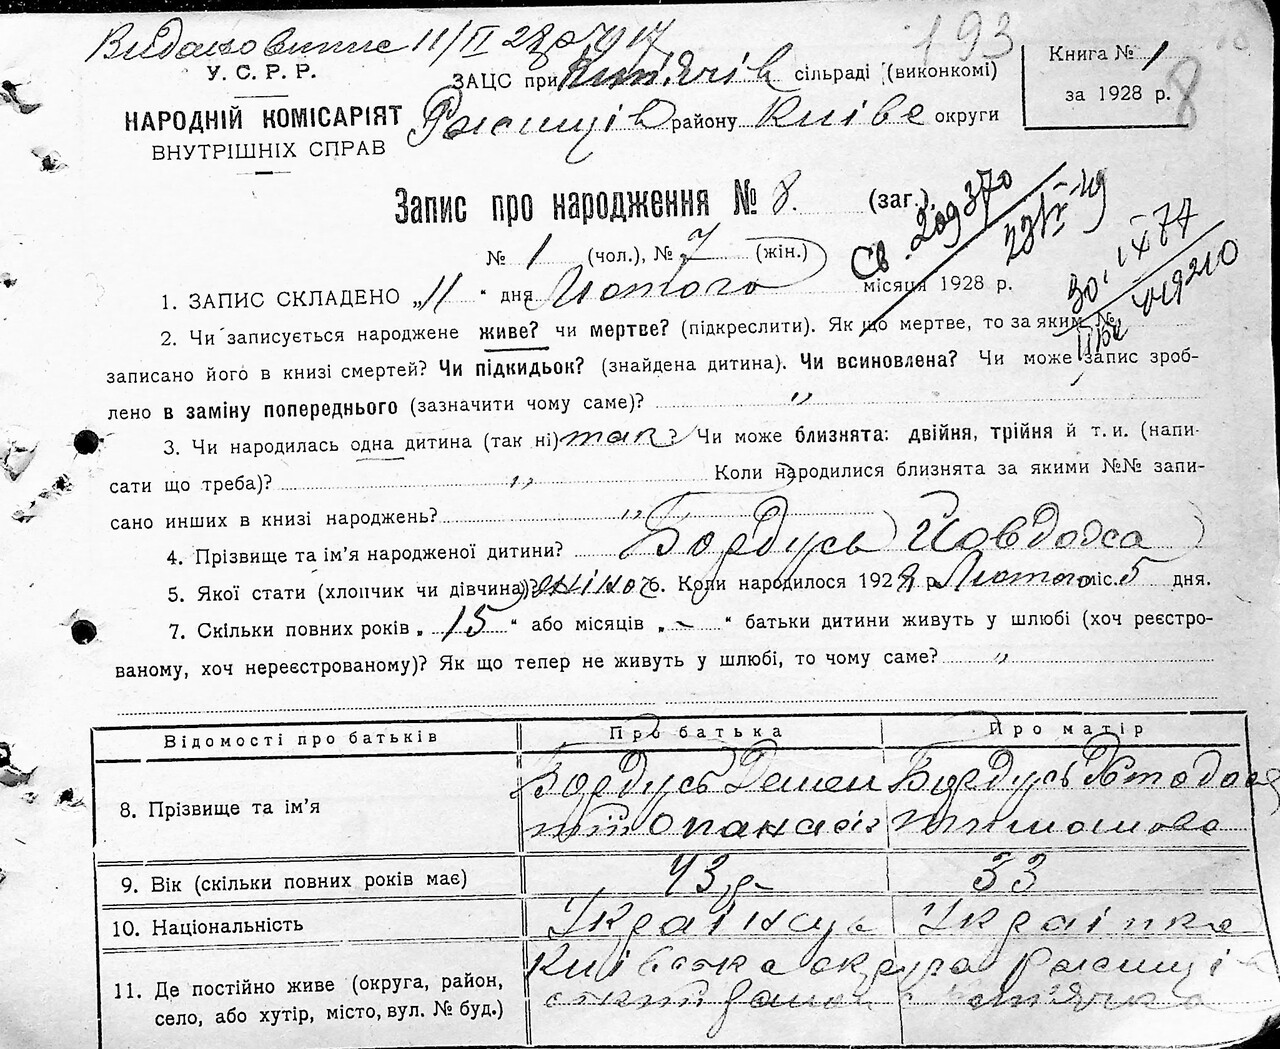 Видано виписе 11/II 28 р №17
193
У. С. Р. Р.
НАРОДНІЙ КОМІСАРІЯТ
ВНУТРІШНІХ СПРАВ
ЗАЦС при сільраді (виконкомі)
району Київс округи
Книга № 1
за 1928 р.
8
Запис про народження № 8. (заг.),
№ 1 (чол.), № 7 (жін.)
Св. 209370
30. IX 77
419210
1. ЗАПИС СКЛАДЕНО „11" дня Лютого місяця 1928 р.
2. Чи записується народжене живе? чи мертве? (підкреслити). Як що мертве, то за яким №
записано його в книзі смертей? Чи підкидьок? (знайдена дитина). Чи всиновлена? Чи може запис зроб-
лено в заміну попереднього (зазначити чому саме)? „
3. Чи народилась одна дитина (так ні) так? Чи може близнята: двійня, трійня й т. и. (напи-
сати що треба)? „ Коли народилися близнята за якими №№ запи-
сано инших в книзі народжень? „
4. Прізвище та ім'я народженої дитини? Бордусь Йовдоха
5. Якої стати (хлопчик чи дівчина)? жіноч 6. Коли народилося 1928 р. Лютого міс. 5 дня.
7. Скільки повних років „ 15 " або місяців „ - " батьки дитини живуть у шлюбі (хоч реєстро-
ваному, хоч нереєстрованому)? Як що тепер не живуть у шлюбі, то чому саме? „
Відомості про батьків Про батька Про матір
8. Прізвище та ім'я Бордусь Демен Бордусь
тій Опанасів
9. Вік (скільки повних років має) 43 р 33
10. Національність Українць Українка
11. Де постійно живе (округа, район, Київська округа Ржищів
село, або хутір, місто, вул. № буд.) ський район